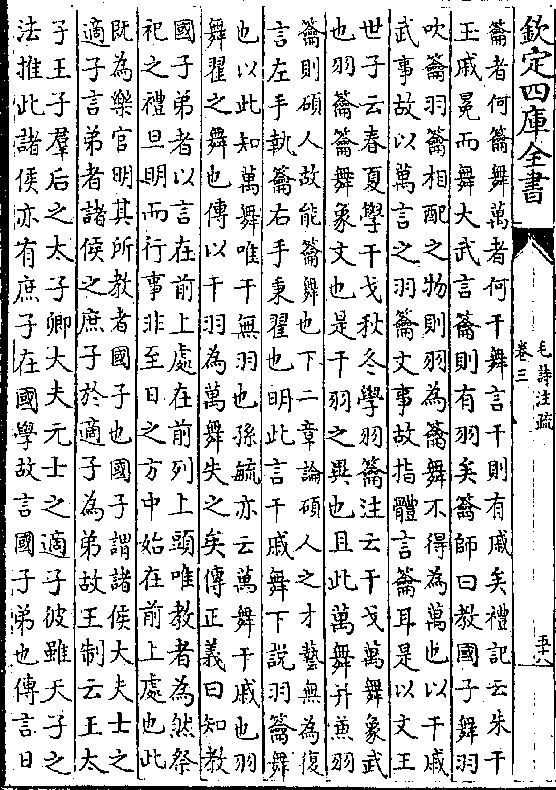 欽定四庫全書
毛詩注疏
卷三
籥者何籥舞萬者何干舞言干則有戚矣禮記云朱干
玉戚冕而舞大武言籥則有羽矣籥師曰教國子舞羽
吹籥羽籥相配之物則羽為籥舞不得為萬也以干戚
武事故以萬言之羽籥文事故指體言籥耳是以文王
世子云春夏學干戈秋冬學羽籥注云干戈萬舞象武
也羽籥籥舞象文也是干羽之異也且此萬舞并兼羽
籥則碩人故能籥舞也下二章論碩人之才藝無為復
言左手執籥右手秉翟也明此言干戚舞下説羽籥舞
也以此知萬舞唯干無羽也孫毓亦云萬舞干戚也羽
舞翟之舞也傳以干羽為萬舞失之矣傳正義曰知教
國子弟者以言在前上處在前列上頭唯教者為然祭
祀之禮旦明而行事非至日之方中始在前上處也此
既為樂官明其所教者國子也國子謂諸侯大夫士之
適子言弟者諸侯之庶子於適子為弟故王制云王太
子王子羣后之太子卿大夫元士之適子彼雖天子之
法推此諸侯亦有庶子在國學故言國子弟也傳言日